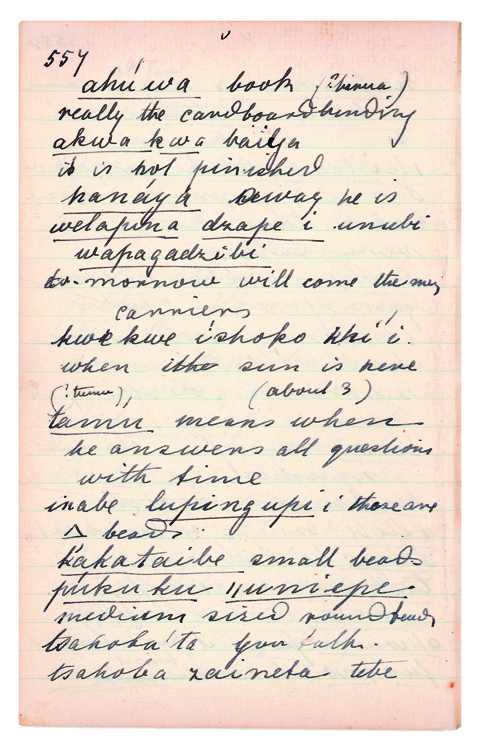 557
ahúwa book (?binua)
really the cardboard binding
akwa kwa baiiya
it is not finished
kanáya away he is
welapina dzape i unubi
wapagadzibi
to-morrow will come the mny
carriers
kwe kwe íshoko kki í.
when the sun is here
(?tumu), (about 3)
tamú means when
he answers all questions
with time
inabe lupingupi i those are
△ beads
kakataibe small beads
pukuku iiuniepe
medium sized round beads
tsakoba'ta you talk.
tsakoba zaineta tebe